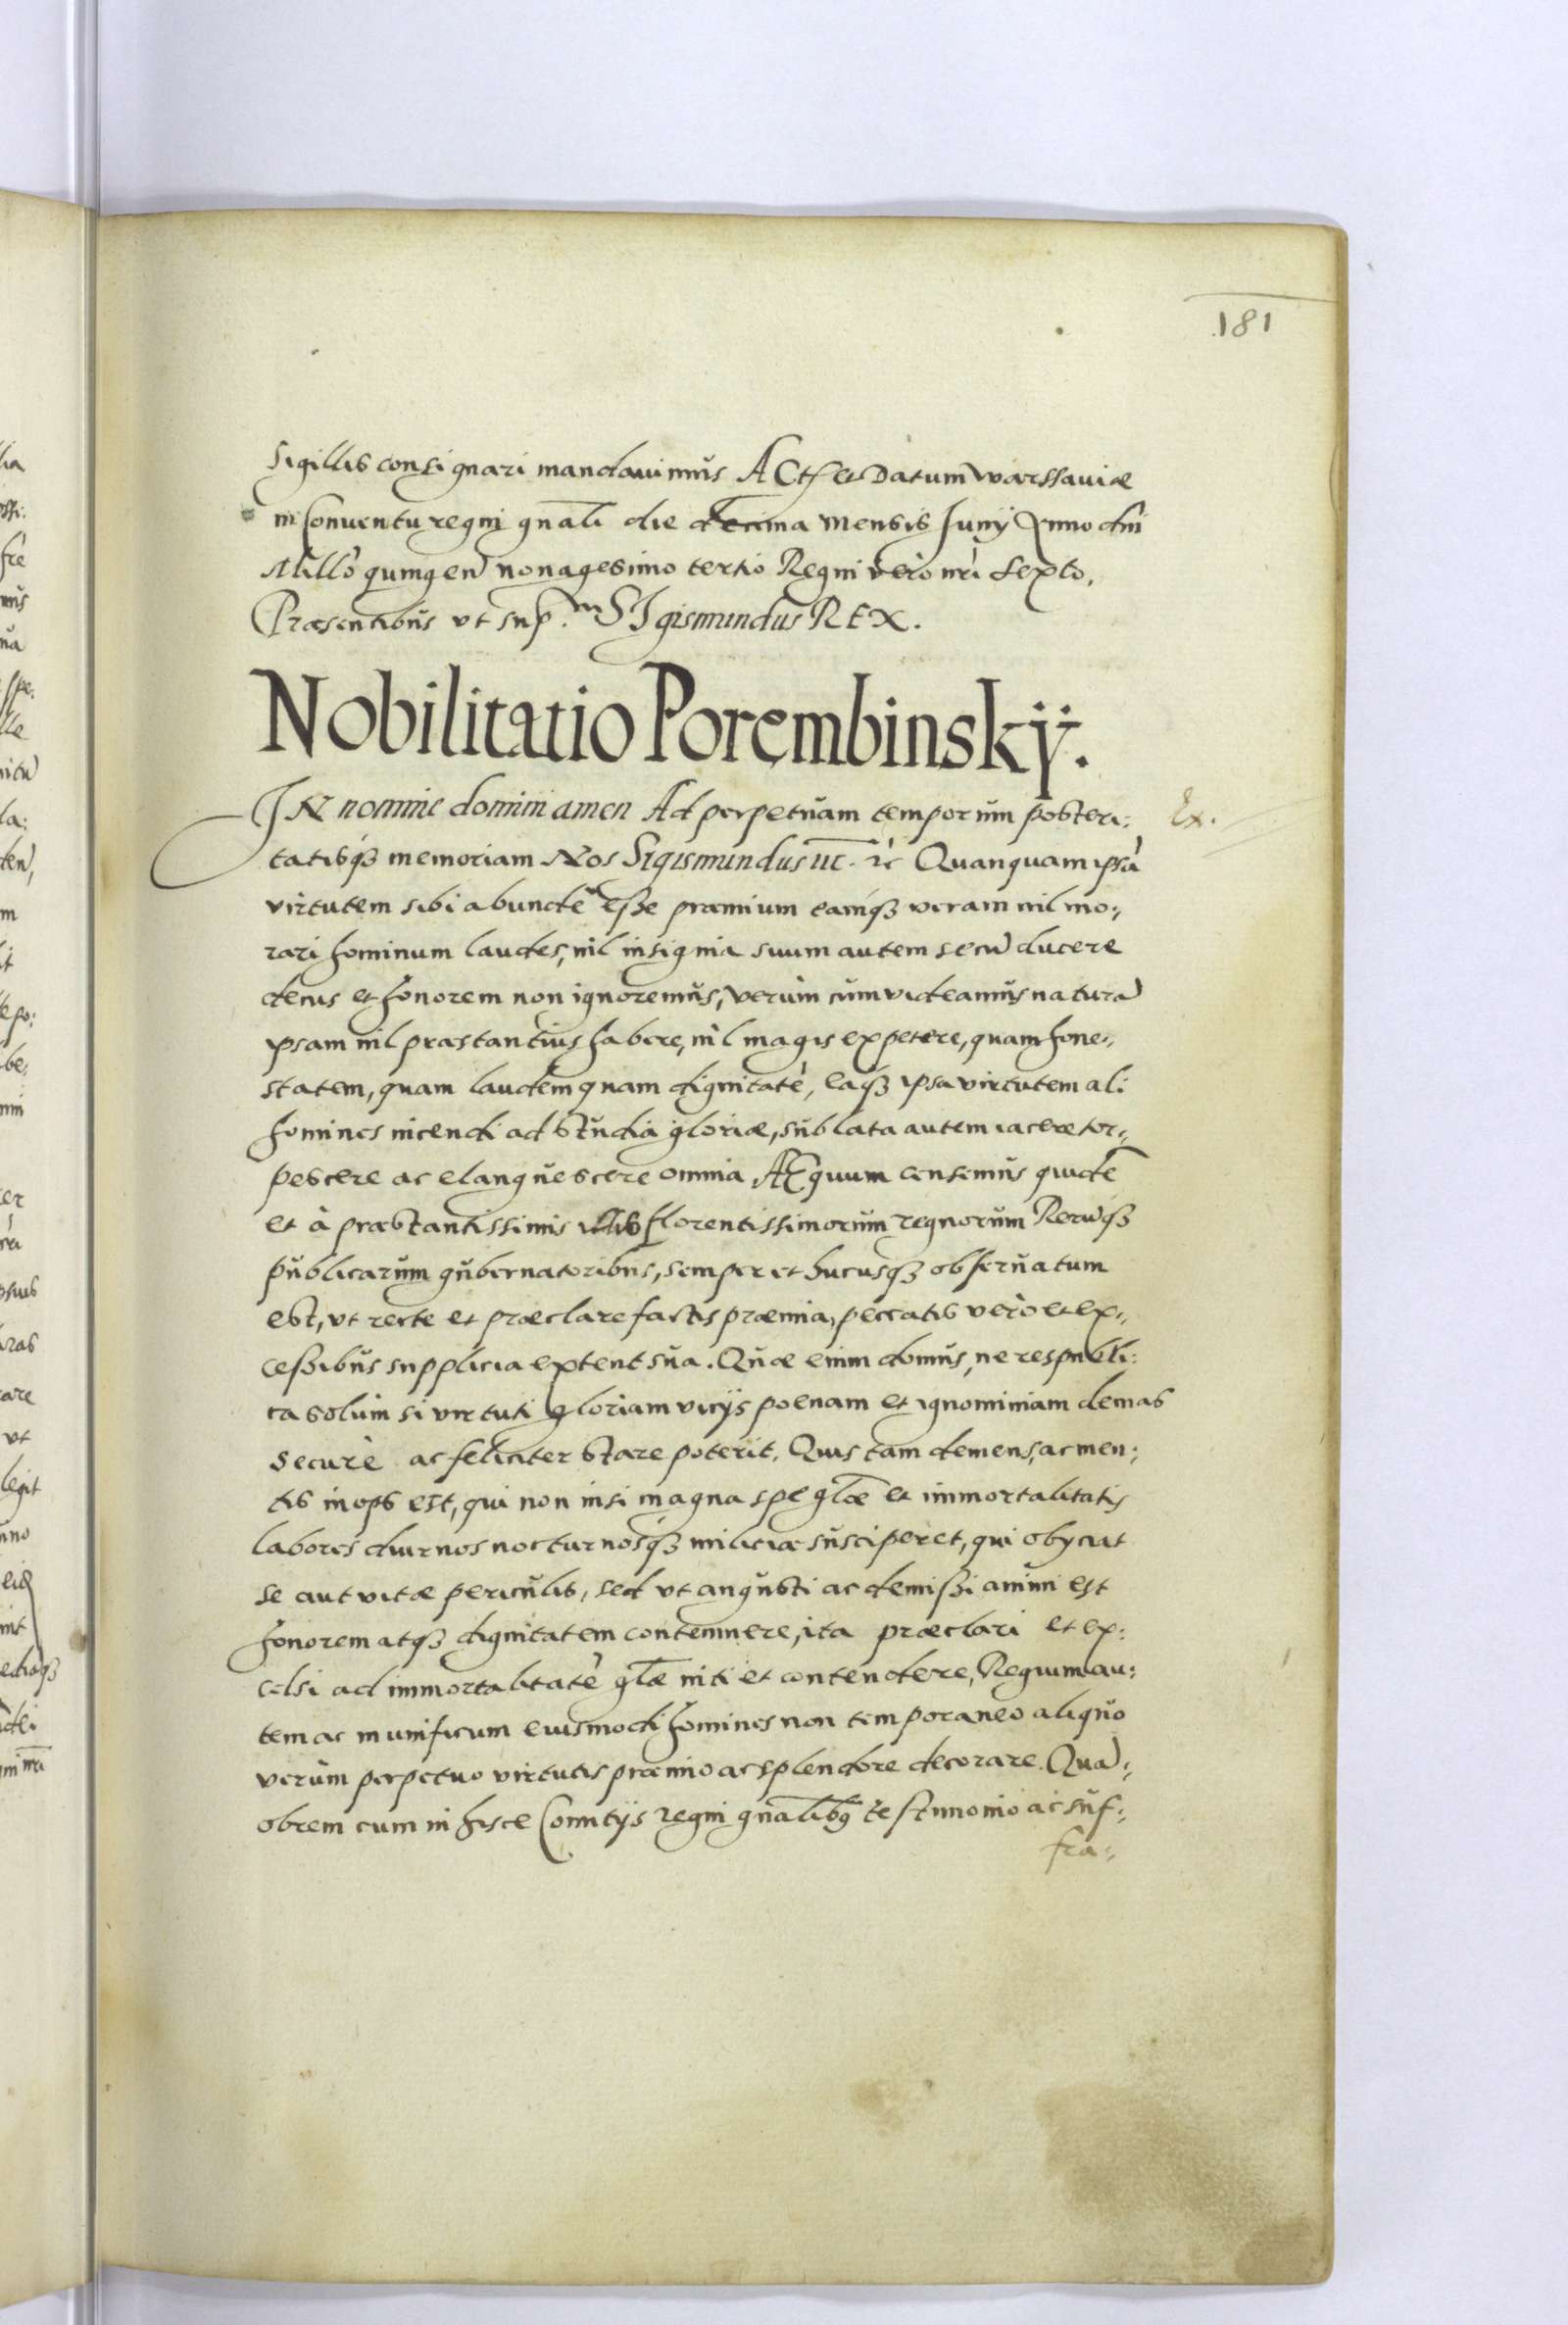 181
Sigillis consignari mandauimus ACtũ et Datum Warssauiæ
in Conuentu regni gnāli die decima mensis Junÿ Anno dñi
Millo quingen nonagesimo tertio Regni vero nri Sexto.
Præsentibus vt sup. SIgismundus REX.
Nobilitatio Porembinskÿ.
IN nomine domini amen Ad perpetuam temporum posteri:
Ex.
tatisq3 memoriam Nos Sigismundus ut. rc Quanquam ipsã
virtutem sibi abunde esse præmium eamq3 veram nil mo:,
rari hominum laudes, nil insignia suum autem secũ ducere
decus et honorem non ignoremus, verùm cùm videamus naturã
ipsam nil præstantius habere, nil magis expetere, quam hone:,
statem, quam laudem quam dignitatẽ, eaq3 ipsa virtutem ali
homines incendi ad studia gloriæ, sublata autem iacere tor:,
pescere ac elanguescere omnia AEquum censemus quidẽ
et à præstantissimis illis florentissimorum regnorum Rerũq3
publicarum gubernatoribus, semper et hucusq3 obseruatum
est, vt recte et præclare factis præmia, peccatis verò et ex:,
cessibus supplicia extent sua. Quæ enim domus, ne respubli:
ca solùm si virtuti gloriam vicÿs poenam et ignominiam demas
securè ac feliciter stare poterit. Quis tam demens, ac men:,
tis inops est, qui non nisi magna spe glõæ et immortalitatis
labores diurnos nocturnosq3 miliciæ susciperet, qui obÿciat
se aut vitæ periculis, sed vt angusti ac demissi animi est
honorem atq3 dignitatem contemnere, ita præclari et ex:
celsi ad immortalitatẽ glæ niti et contendere, Regium au:,
tem ac munificum eiusmodi homines non temporaneo aliquo
verùm perpetuo virtutis præmio ac splendore decorare. Quã:,
obrem cum in hisce Comitÿs regni gnālibq testimonio ac suf:,
fra:,